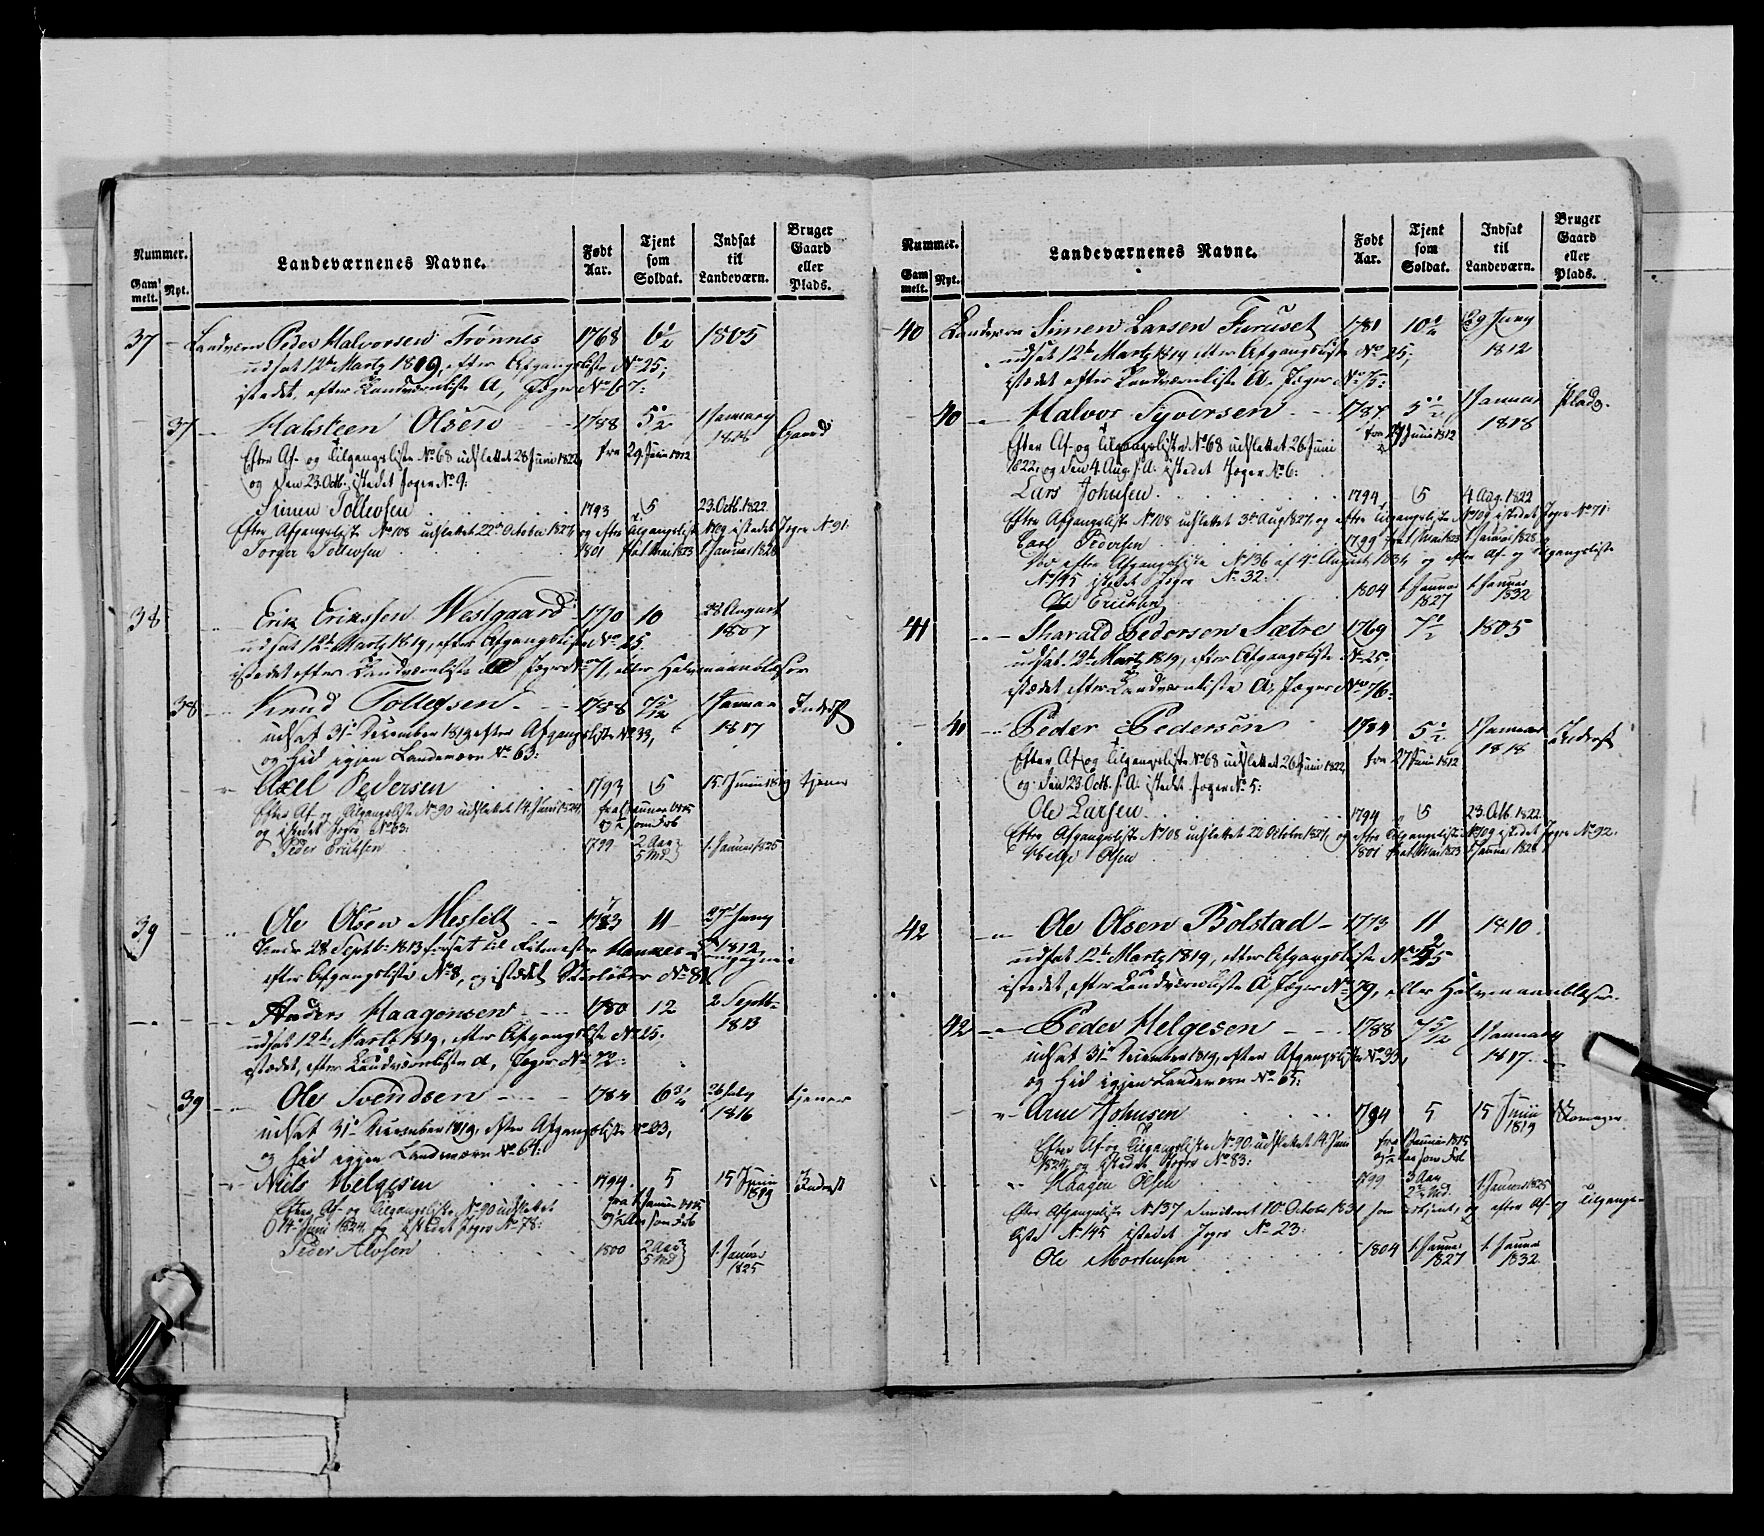 Nummer. Landeværnenes Navne. Født Aar. Tjent som Soldat. Indsat til Landeværn. Bruger Gaard eller Plads.
Gammelt. Nyt.
37 Landværn Peder Halvorsen Trønnes 1768 6½ 1805
udsat 12te Martz 1819, efter Afgangsliste No 25,
istedet, efter Landværnliste A, Jæger No 67:
37 Halsteen Olsen 1788 5½ 1 January 1818 Gaard
Efter Af- og Tilgangsliste No 68 udslettet 28 Juni 1822, fra 29 Juni 1812
og den 23. Octb. istedet Jæger No 9:
Simen Tollevsen 1793 5 23. Octb. 1822
Efter Afgangsliste No 108 udslettet 22de October 1827, og efter Tilgangsliste No 109 istedet Jægr No 91:
Torger Tollevsen 1801 fra 1 Mai 1823 1 Januar 1828
38 Erik Erikssen Westgaard 1770 10 28 August 1807
udsat 12te Martz 1819, efter Afgangsliste No 25.
istedet efter Landværnliste A Jæger No 71, eller Halvmaanblæser
38 Knud Tollefsen 1788 7 5/12 1 Januar 1817 Inderst
udsat 31te December 1819 efter Afgangsliste No 33,
og hid igjen Landeværn No 63:
Axel Pedersen 1793 5 15. Junii 1819 tjener
Efter Af- og Tilgangsliste No 90 udslettet 14. Juni 1824, fra 1 Januar 1815
og istedet Jægr No 83: og ½ som Frb
Peder Eriksen 1799 2 Aar 5 Md 1. Januar 1825
39 Ole Olsen Messelt 1783 11 27 Juny 1812
under 28 Septbr: 1813 forsat til Ritmester Compagnie
efter Afgangsliste No 8, og istædet Skieløber No 81
Anders Haagensen 1780 12 2 Septbr 1813
udsat 12te Martz 1819, efter Afgangsliste No 25.
istædet, efter Landværnliste A, Jæger No 72:
39 Ole Svendsen 1784 6¾ 26 July 1816 tjener
udsat 31te December 1819, efter Afgangsliste No 33,
og hid igjen Landeværn No 64:
Niels Helgesen 1794 5 15 Junii 1819 Inderst
Efter Af- og Tilgangsliste No 90 udslettet fra 1 Januar 1815
14. Juni 1824, og istedet Jægr No 78: og ½ Aar som Frb
Peder Alvsen 1800 2 Aar 5 Md 1. Januar 1825
Nummer. Landeværnenes Navne. Født Aar. Tjent som Soldat. Indsat til Landeværn. Bruger Gaard eller Plads.
Gammelt. Nyt.
40 Landværn Simen Larsen Furuset 1781 10¼ 29 Juny 1812
udsat 12te Martz 1819 efter Afgangsliste No 25,
istædet efter Landværnliste A. Jæger No 75:
40 Halvor Syversen 1787 5½ 1 Januar 1818 Plads.
fra 27 Juni 1812
Efter Af- og Tilgangsliste No 68 udslettet 26 Juni
1822, og den 4. Aug. s. A. istedet Jæger No 6:
Lars Johnsen 1794 5 4 Aug. 1822
Efter Afgangsliste No 108 udslettet 3de Aug 1827, og efter Tilgangsliste No 109 istedet Jægr No 71:
Carl Pedersen 1799 fra 1 Mai 1823 1 Januar 1828
efter Afgangsliste No 136 af 4de August 1831 og efter Af- og Tilgangsliste
No 145 istedet Jægr No 32:
Ole Ericksen 1804 1. Januar 1827 1. Januar 1832
41 Tharald Pedersen Sætre 1769 7½ 1805
udsat 12te Martz 1819, efter Afgangsliste No 25.
istædet, efter Landværnliste A, Jæger No 76:
41 Peder Pedersen 1784 5½ 1 Januar 1818 Inderst
Efter Af- og Tilgangsliste No 68 udslettet 26 Juni 1822, fra 27 Juni 1812
og den 23 Octb. s. A. istedet Jæger No 5:
Ole Larsen 1794 5 23. Octb. 1822
Efter Afgangsliste No 108 udslettet 22 October 1827, og efter Tilgangsliste No 109 istedet Jægr No 92:
Helge Olsen 1801 fra 1. Mai 1823 1 Januar 1828
42 Ole Olsen Bolstad 1773 11 1810
udsat 12te Martz 1819, efter Afgangsliste No 25
istedet, efter Landværnliste A Jæger No 79, eller Halvmaanblæser.
42 Peder Helgesen 1788 7 5/12 1 January 1817
udsat 31te December 1819, efter Afgangsliste No 33,
og hid igjen Landeværn No 65:
Arne Johnsen 1794 5 15 Junii 1819
Efter Af- og Tilgangsliste No 90 udslettet 14. Juni fra 1 Januar 1815
1824, og istedet Jægr No 83: og ½ Aar som Frb
Haagen Olsen 1799 3 Aar 1 Januar 1825
Efter Afgangsliste No 137 dimitteret 10. October 1831 som udtjent, og efter Af- og Tilgangs-
liste No 145 istedet Jægr No 23:
Ole Mortensen 1804 1. Januar 1827 1. Januar 1832